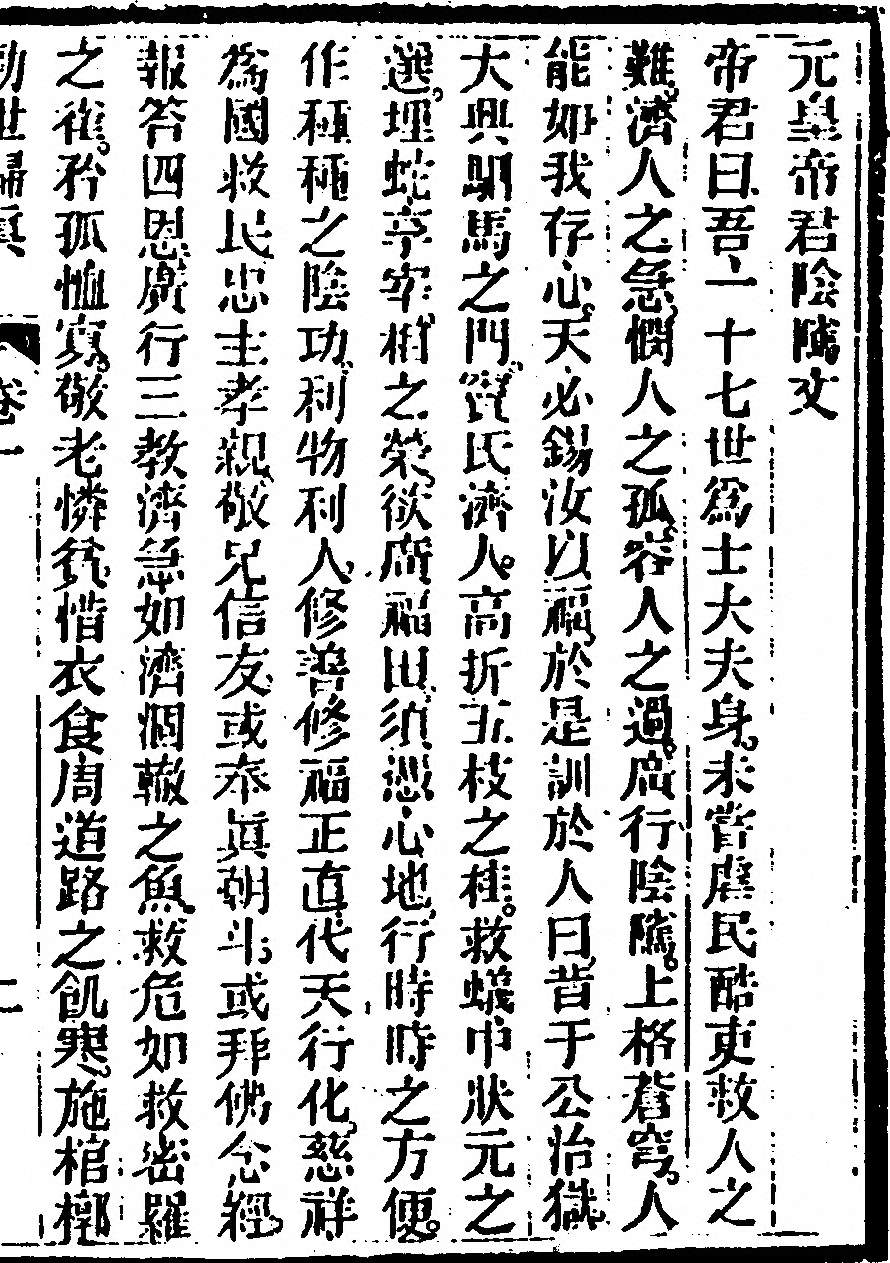 元皇帝君陰隲文
帝君曰吾一十七世爲士大夫身。未嘗虐民酷吏救人之
難。濟人之急。憫人之孤。容人之過。廣行陰隲。上格蒼穹。人
能如我存心。天必錫汝以福。於是訓於人曰。昔于公治獄。
大興駟馬之門。竇氏濟人。高折五枝之桂。救蟻中狀元之
選。埋蛇享宰相之榮。欲廣福田。須憑心地。行時時之方便。
作種種之陰功。利物利人。修善修福。正直代天行化。慈祥
爲國救民。忠主孝親。敬兄信友。或奉眞朝斗。或拜佛念經。
報答四恩。廣行三教。濟急如濟涸轍之魚。救危如救密羅
之雀。矜孤恤寡。敬老憐貧。惜衣食周道路之飢寒。施棺槨
勸世歸眞 卷一 二